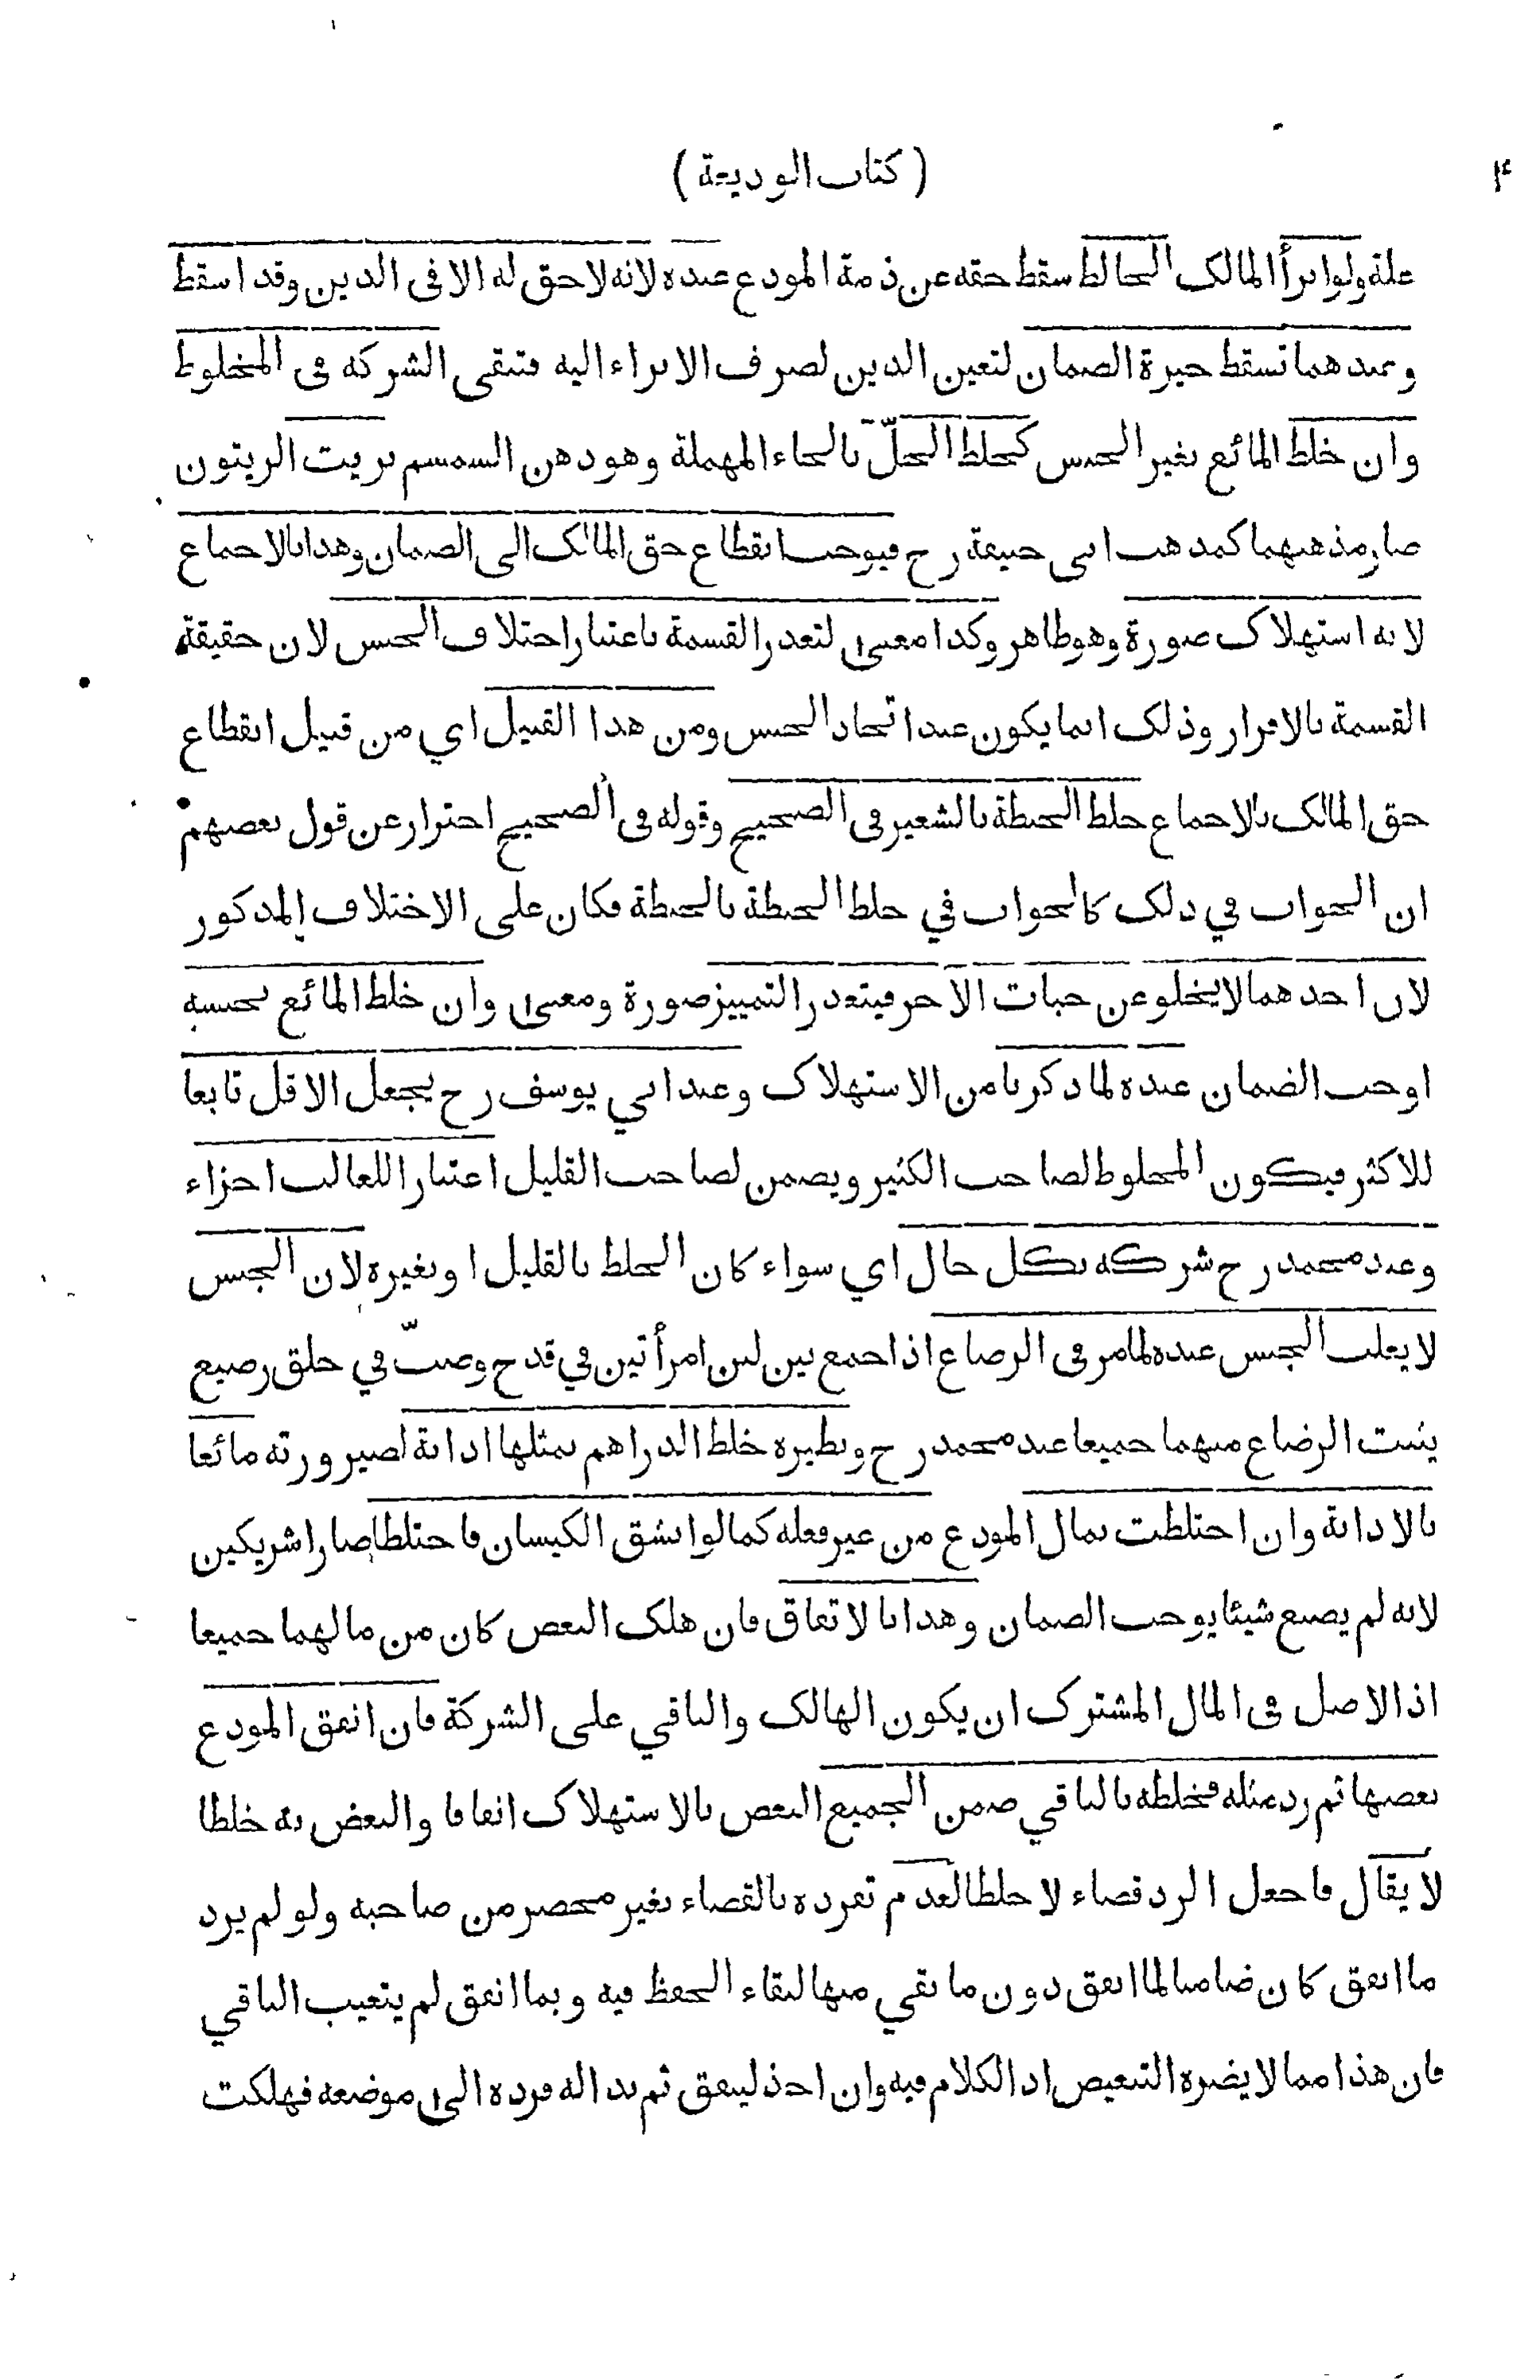 ( كتاب الوديعة )
۴
علة ولو ابرأ المالك الخالط سقط حقه عن ذمة المودع عنده لانه لا حق له الا فى الدين وقد اسقط
وعندهما تسقط خيرة الضمان لتعين الدين لصرف الابراء اليه فتبقى الشركة فى المخلوط
وان خلط المائع بغير الجنس كخلط الحلّ بالحاء المهملة وهو دهن السمسم بزيت الزيتون
صار مذهبهما كمذهب ابى حنيفة رح فيوجب انقطاع حق المالك الى الضمان وهذا بالاجماع
لانه استهلاك صورة وهو ظاهر وكذا معنى لتعذر القسمة باعتبار اختلاف الجنس لان حقيقة
القسمة بالافراز وذلك انما يكون عند اتحاد الجنس ومن هذا القبيل اي من قبيل انقطاع
حق المالك بالاجماع خلط الحنطة بالشعير فى الصحيح وقوله فى الصحيح احتراز عن قول بعضهم
ان الجواب في ذلك كالجواب في خلط الحنطة بالحنطة فكان على الاختلاف المذكور
لان احدهما لا يخلو عن حبات الآخر فيتعذر التمييز صورة ومعنى وان خلط المائع بجنسه
اوجب الضمان عنده لما ذكرنا من الاستهلاك وعند ابي يوسف رح يجعل الاقل تابعا
للاكثر فيكون المخلوط لصاحب الكثير ويضمن لصاحب القليل اعتبارا للغالب اجزاء
وعند محمد رح شركه بكل حال اي سواء كان الخلط بالقليل او بغيره لان الجنس
لا يغلب الجنس عنده لما مر فى الرضاع اذا جمع بين لبن امرأتين في قدح وصبّ في حلق رضيع
يثبت الرضاع منهما جميعا عند محمد رح ونظيره خلط الدراهم بمثلها اذابة لصيرورته مائعا
بالاذابة وان اختلطت بمال المودع من غير فعله كما لو انشق الكيسان فاختلطا صارا شريكين
لانه لم يصنع شيئا يوجب الضمان وهذا بالاتفاق فان هلك البعض كان من مالهما جميعا
اذ الاصل فى المال المشترك ان يكون الهالك والباقي على الشركة فان انفق المودع
بعضها ثم رد مثله فخلطه بالباقي ضمن الجميع البعض بالاستهلاك انفاقا والبعض به خلطا
لا يقال فاجعل الرد قضاء لا خلطا لعدم تفرده بالقضاء بغير محضر من صاحبه ولو لم يرد
ما انفق كان ضامنا لما انفق دون ما بقي منها لبقاء الحفظ فيه وبما انفق لم يتعيب الباقي
فان هذا مما لا يضره التبعيض اذ الكلام فيه وان اخذ لينفق ثم بدا له فرده الى موضعه فهلكت